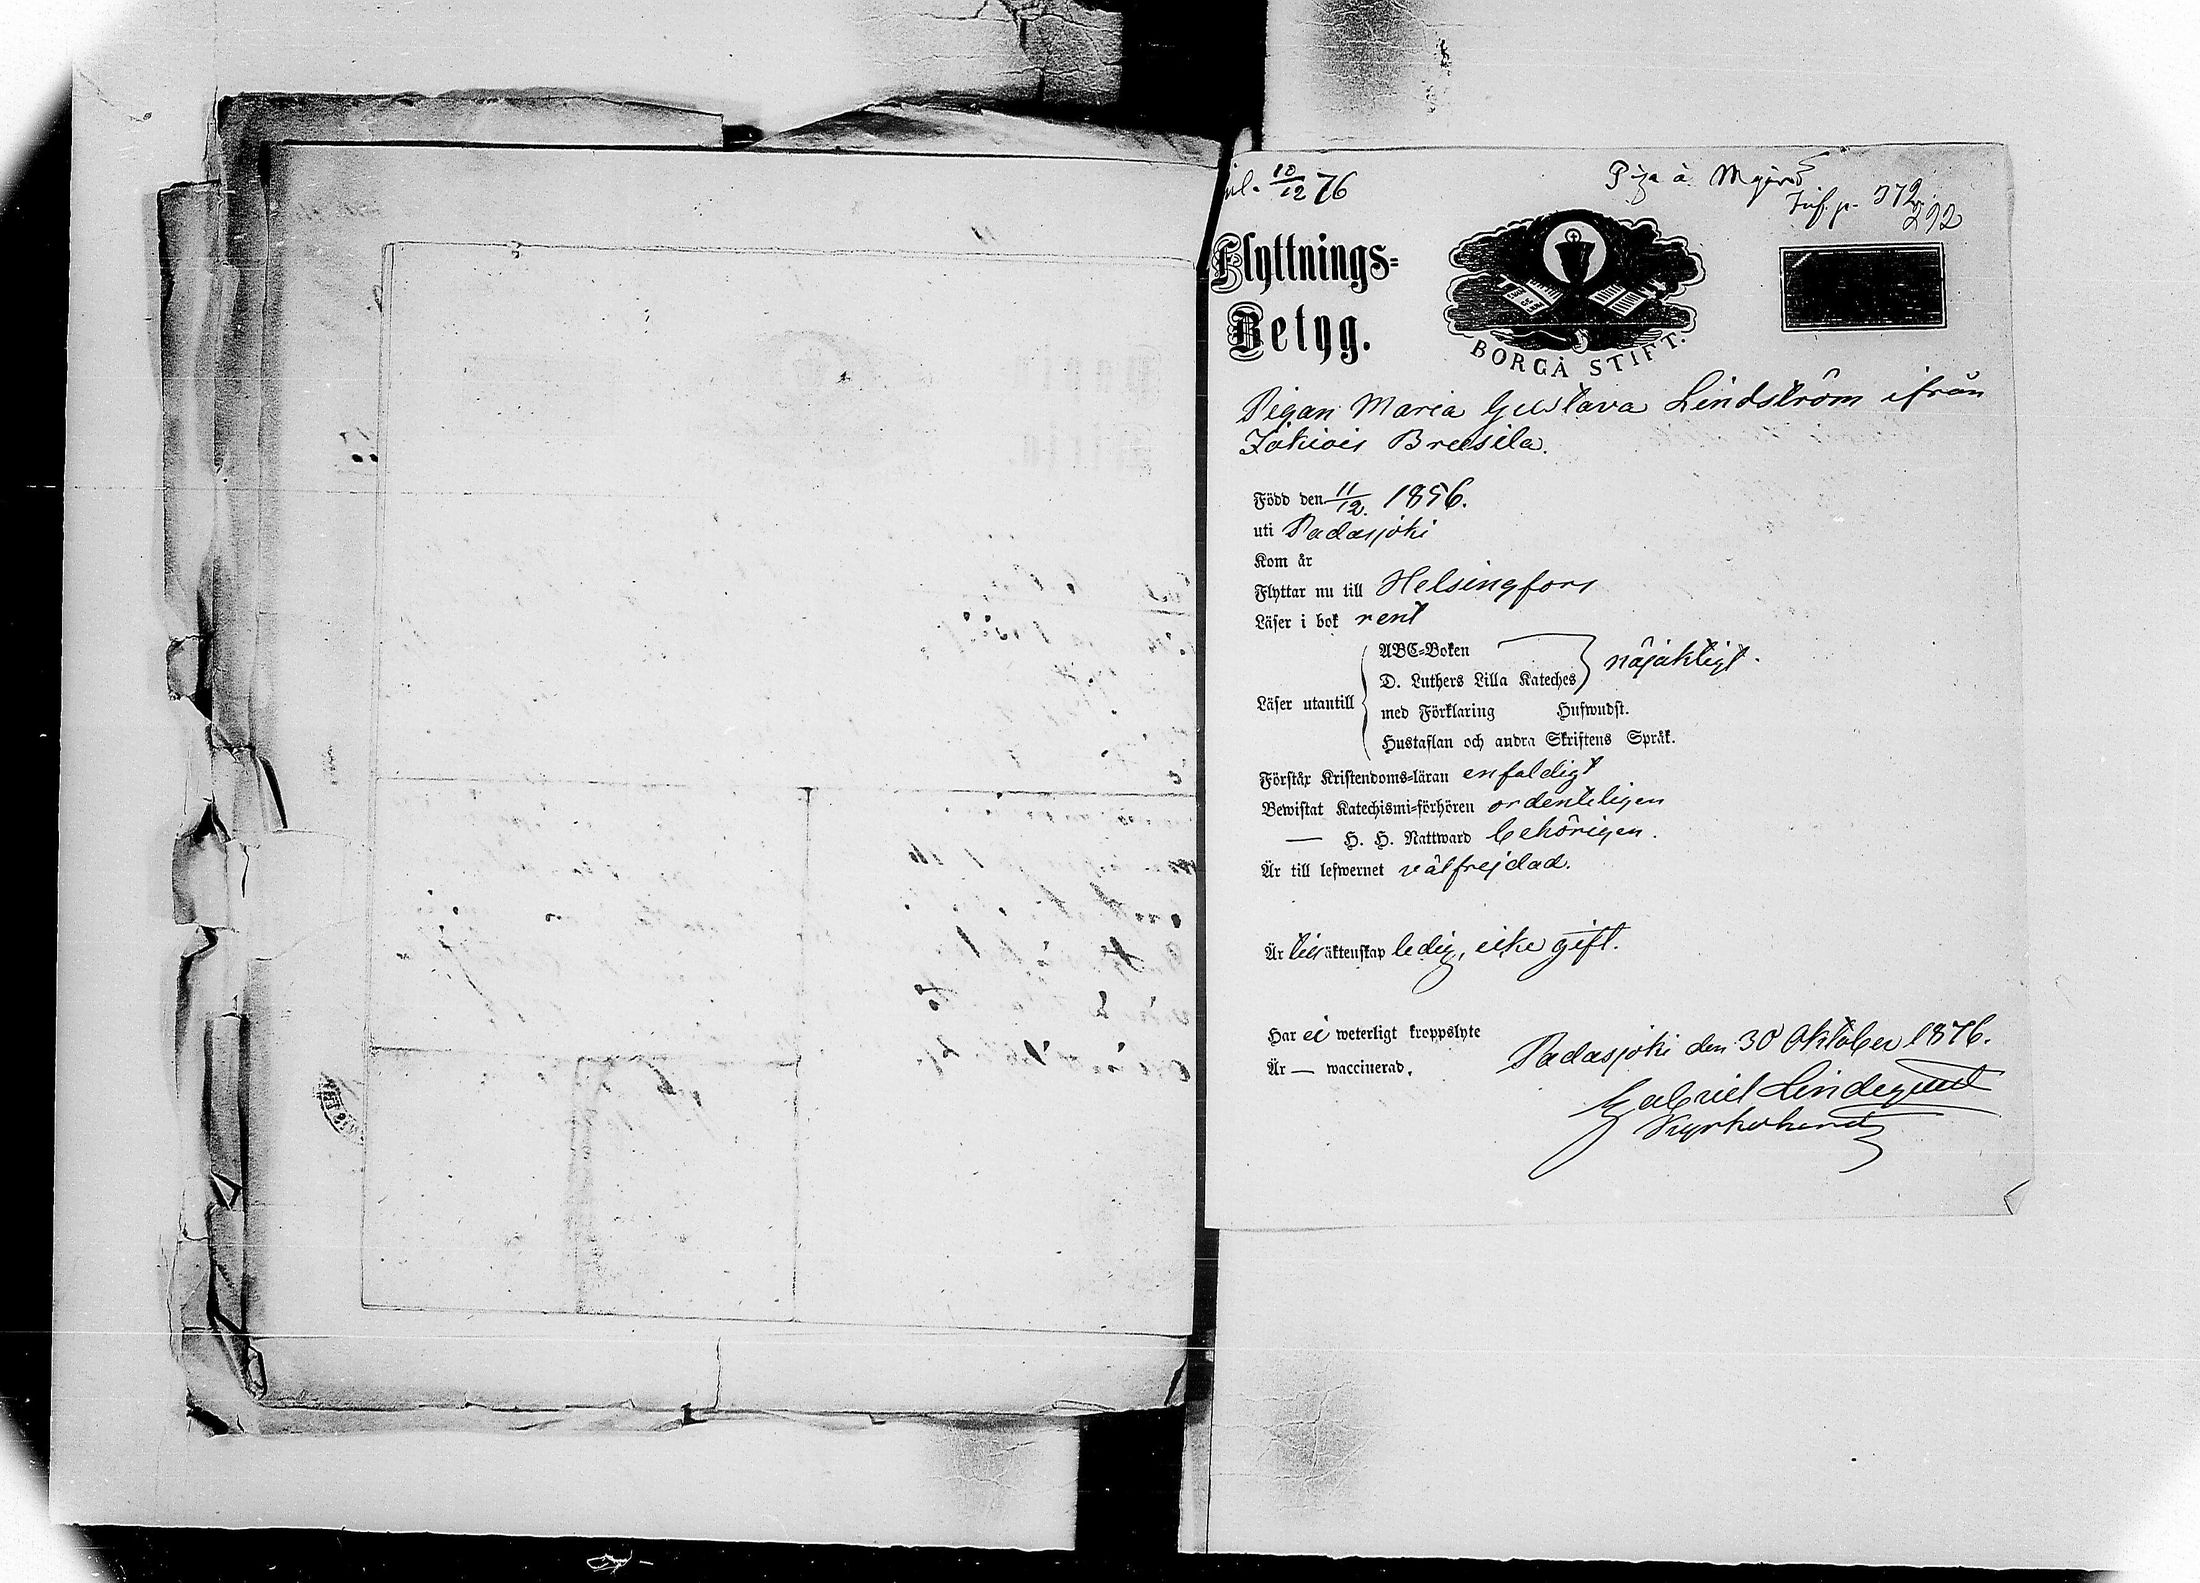 10/12 76
Piga å
Inf. p. 372
292
Flyttnings=
Betyg.
BORGÅ STIFT.
Pigan Maria Gustava Lindström ifrån
Jokiois Bresila.
Född den 11/12. 1856.
uti Padasjoki
Kom år
Flyttar nu till Helsingfors
Läser i bok rent
Läser utantill
ABC=Boken
D. Luthers Lilla Kateches
nöjaktigt.
med Förklaring Hufwudst.
Hustaflan och andra Skriftens Språk.
Förstår Kristendoms=läran enfaldigt
Bewistat Katechismi=förhören ordenteligen
— H. H. Nattward behörigen.
Är till lefwernet välfrejdad.
Är till äktenskap ledig, icke gift.
Har ei weterligt kroppslyte
Är — waccinerad.
Padasjoki den 30 Oktober 1876.
Gabriel Lindequist
Kyrkoherde